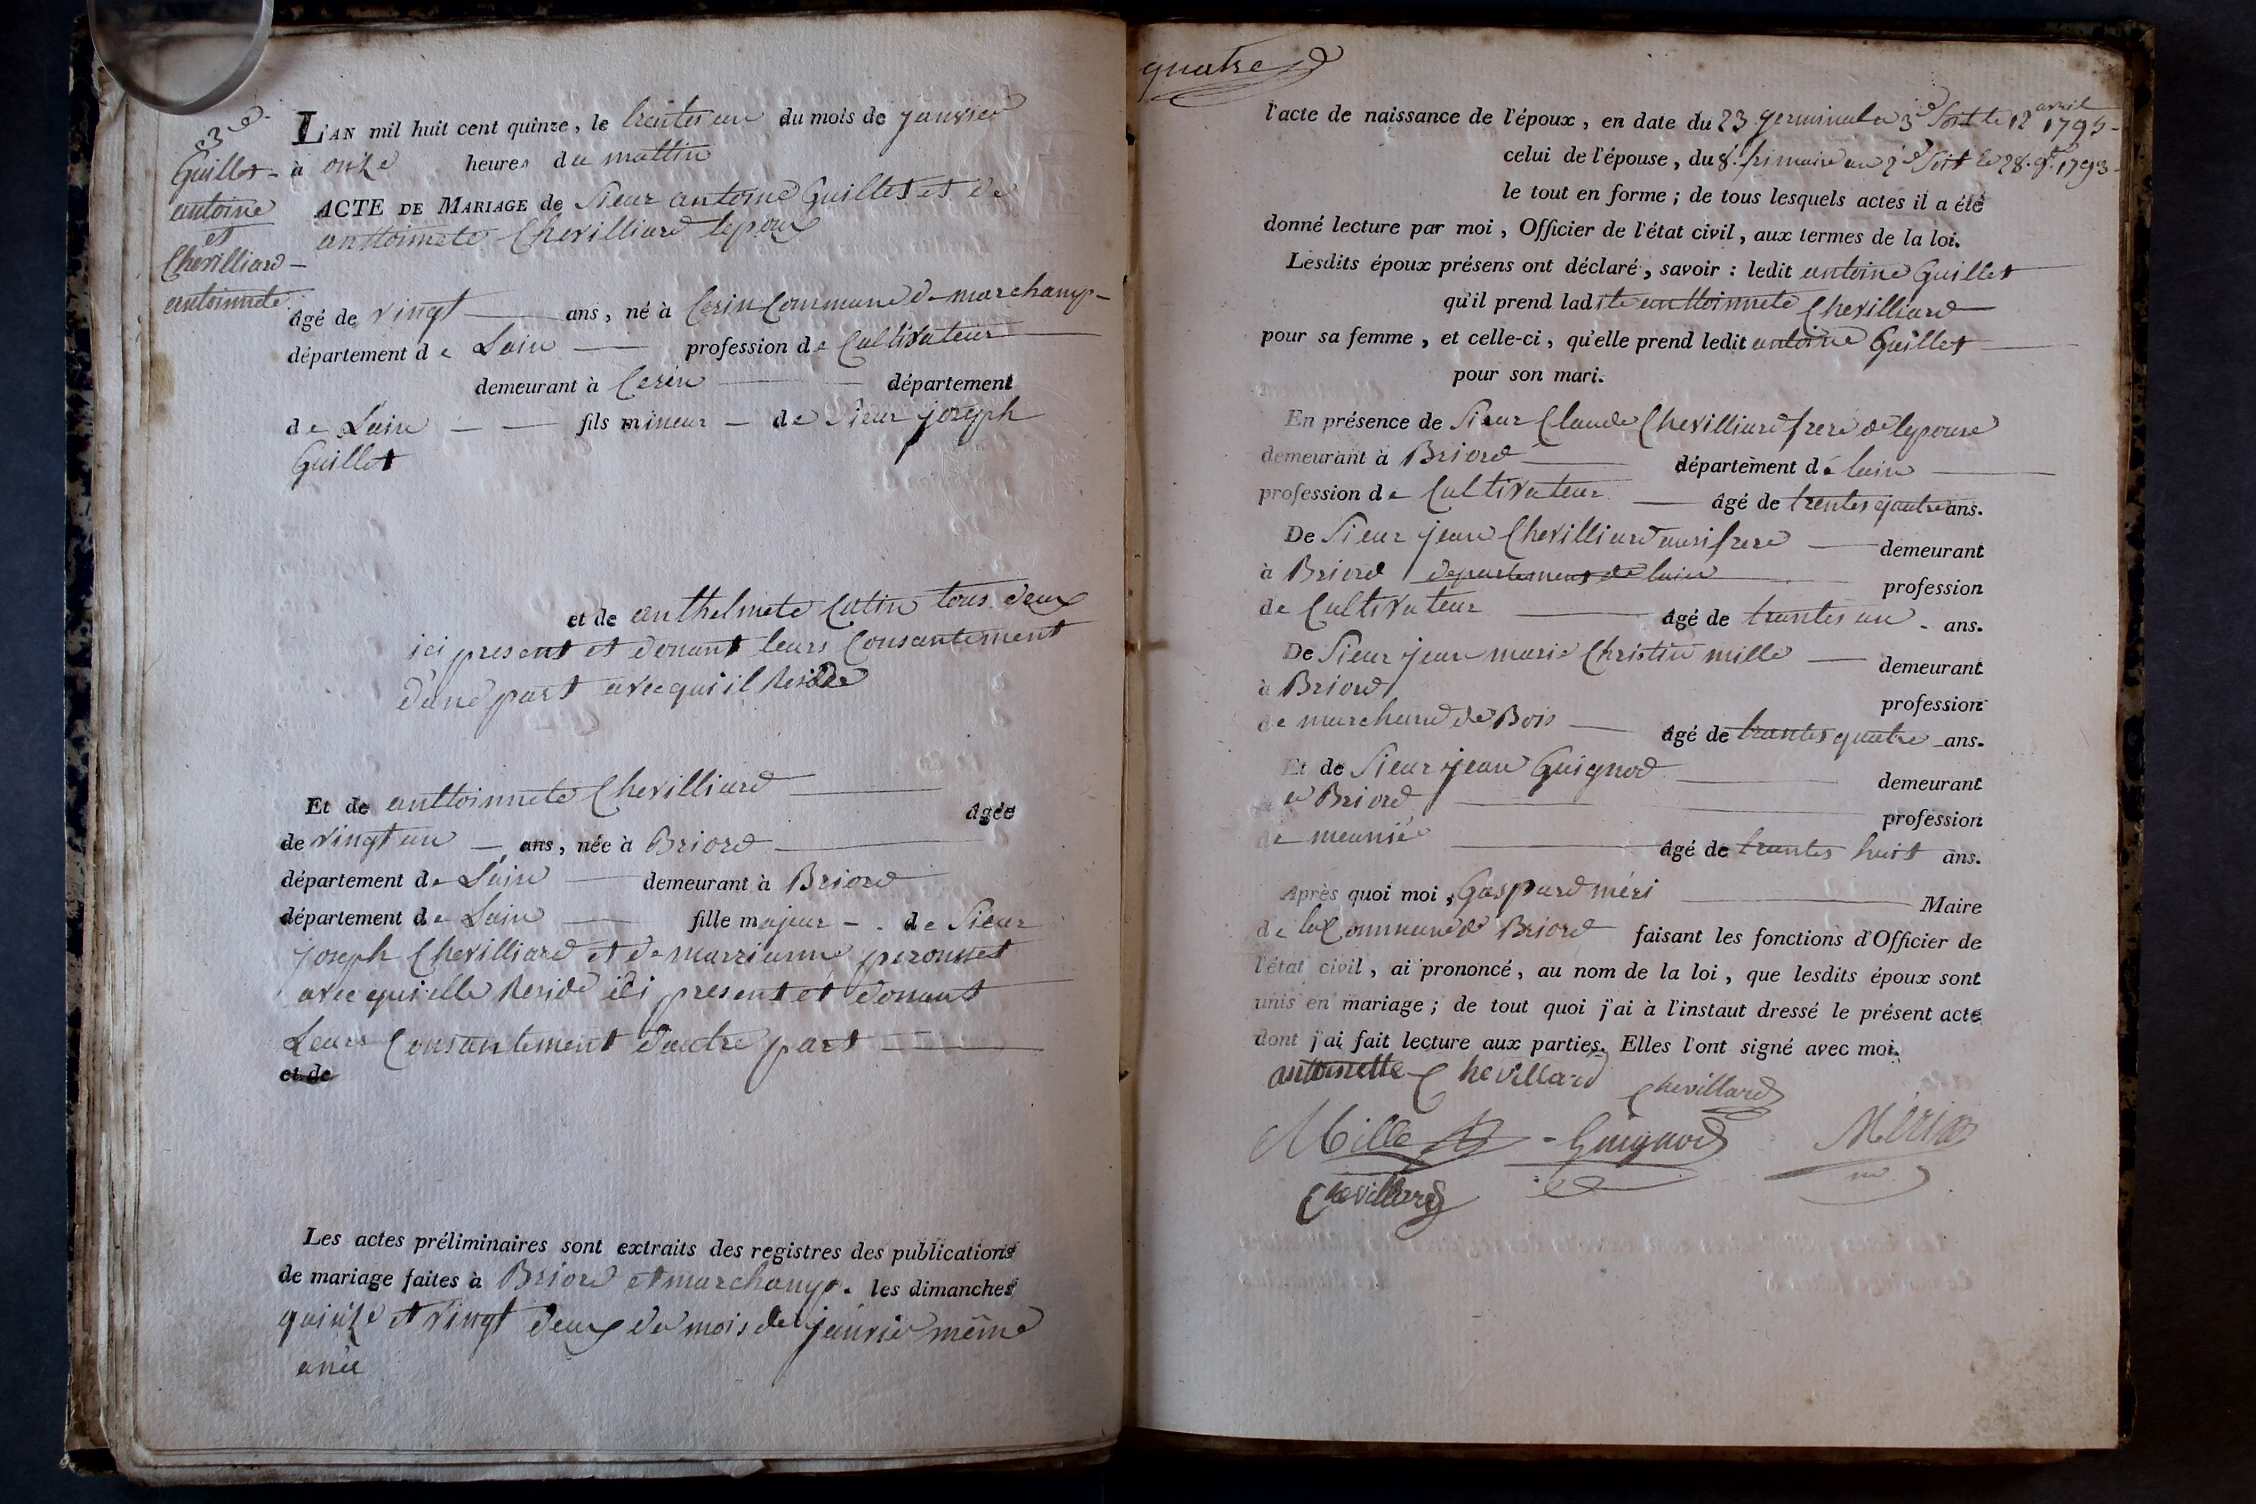 3e
Guillot
antoine
et
Chevilliard
antoinnete
L'AN mil huit cent quinze, le trentes un du mois de janvier
à onze heures du mattin
ACTE DE MARIAGE de Sieur antoine Guillot et de
anttoinnete Chevilliard lepoux
âgé de vingt ans, né à Cerin Commune de marchamp
département de Lain profession de Cultivateur
demeurant à Cerin département
de Lain fils mineur de Sieur joseph
Guillot
et de anthelmete Cutin tous deux
ici present et donant leurs Consantement
dune part avec qui il Reside
Et de anttoinnete Chevilliard âgée
de vingt un ans, née à Briord
département de Lain demeurant à Briord
département de Lain fille majeur de Sieur
joseph Chevilliard et de marrianne peronnet
avec qui elle Reside ici present et donant
Leurs Consantement dautre part
et de
Les actes préliminaires sont extraits des registres des publications
de mariage faites à Briord et marchamp. les dimanches
quinze et vingt deux du mois de janvier même
anée
quatre
l'acte de naissance de l'époux, en date du 23 germinal a 3e Soit le 12 avril 1795
celui de l'épouse, du 8 frimaire an 2e Soit le 28 9bre 1793
le tout en forme; de tous lesquels actes il a été
donné lecture par moi, Officier de l'état civil, aux termes de la loi.
Lesdits époux présens ont déclaré, savoir: ledit antoine Guillot
qu'il prend ladite anttoinnete Chevilliard
pour sa femme, et celle-ci, qu'elle prend ledit antoine Guillot
pour son mari.
En présence de Sieur Claude Chevilliard frere de lepouse
demeurant à Briord département de lain
profession de Cultivateur âgé de trentes quatre ans.
De Sieur jean Chevilliard ausi frere demeurant
à Briord departement de lain profession
de Cultivateur âgé de trantes un ans.
De Sieur jean marie Christin mille demeurant
à Briord profession
de marchand de Bois âgé de trantes quatre ans.
Et de Sieur jean Guignod demeurant
à Briord profession
de meunié âgé de trantes huit ans.
Après quoi moi, Gaspard méri Maire
de la Commune de Briord faisant les fonctions d'Officier de
l'état civil, ai prononcé, au nom de la loi, que lesdits époux sont
unis en mariage; de tout quoi j'ai à l'instaut dressé le présent acte
dont j'ai fait lecture aux parties. Elles l'ont signé avec moi.
antoinette Chevillard Chevillard
Mille Guignod Méri m
Chevillard